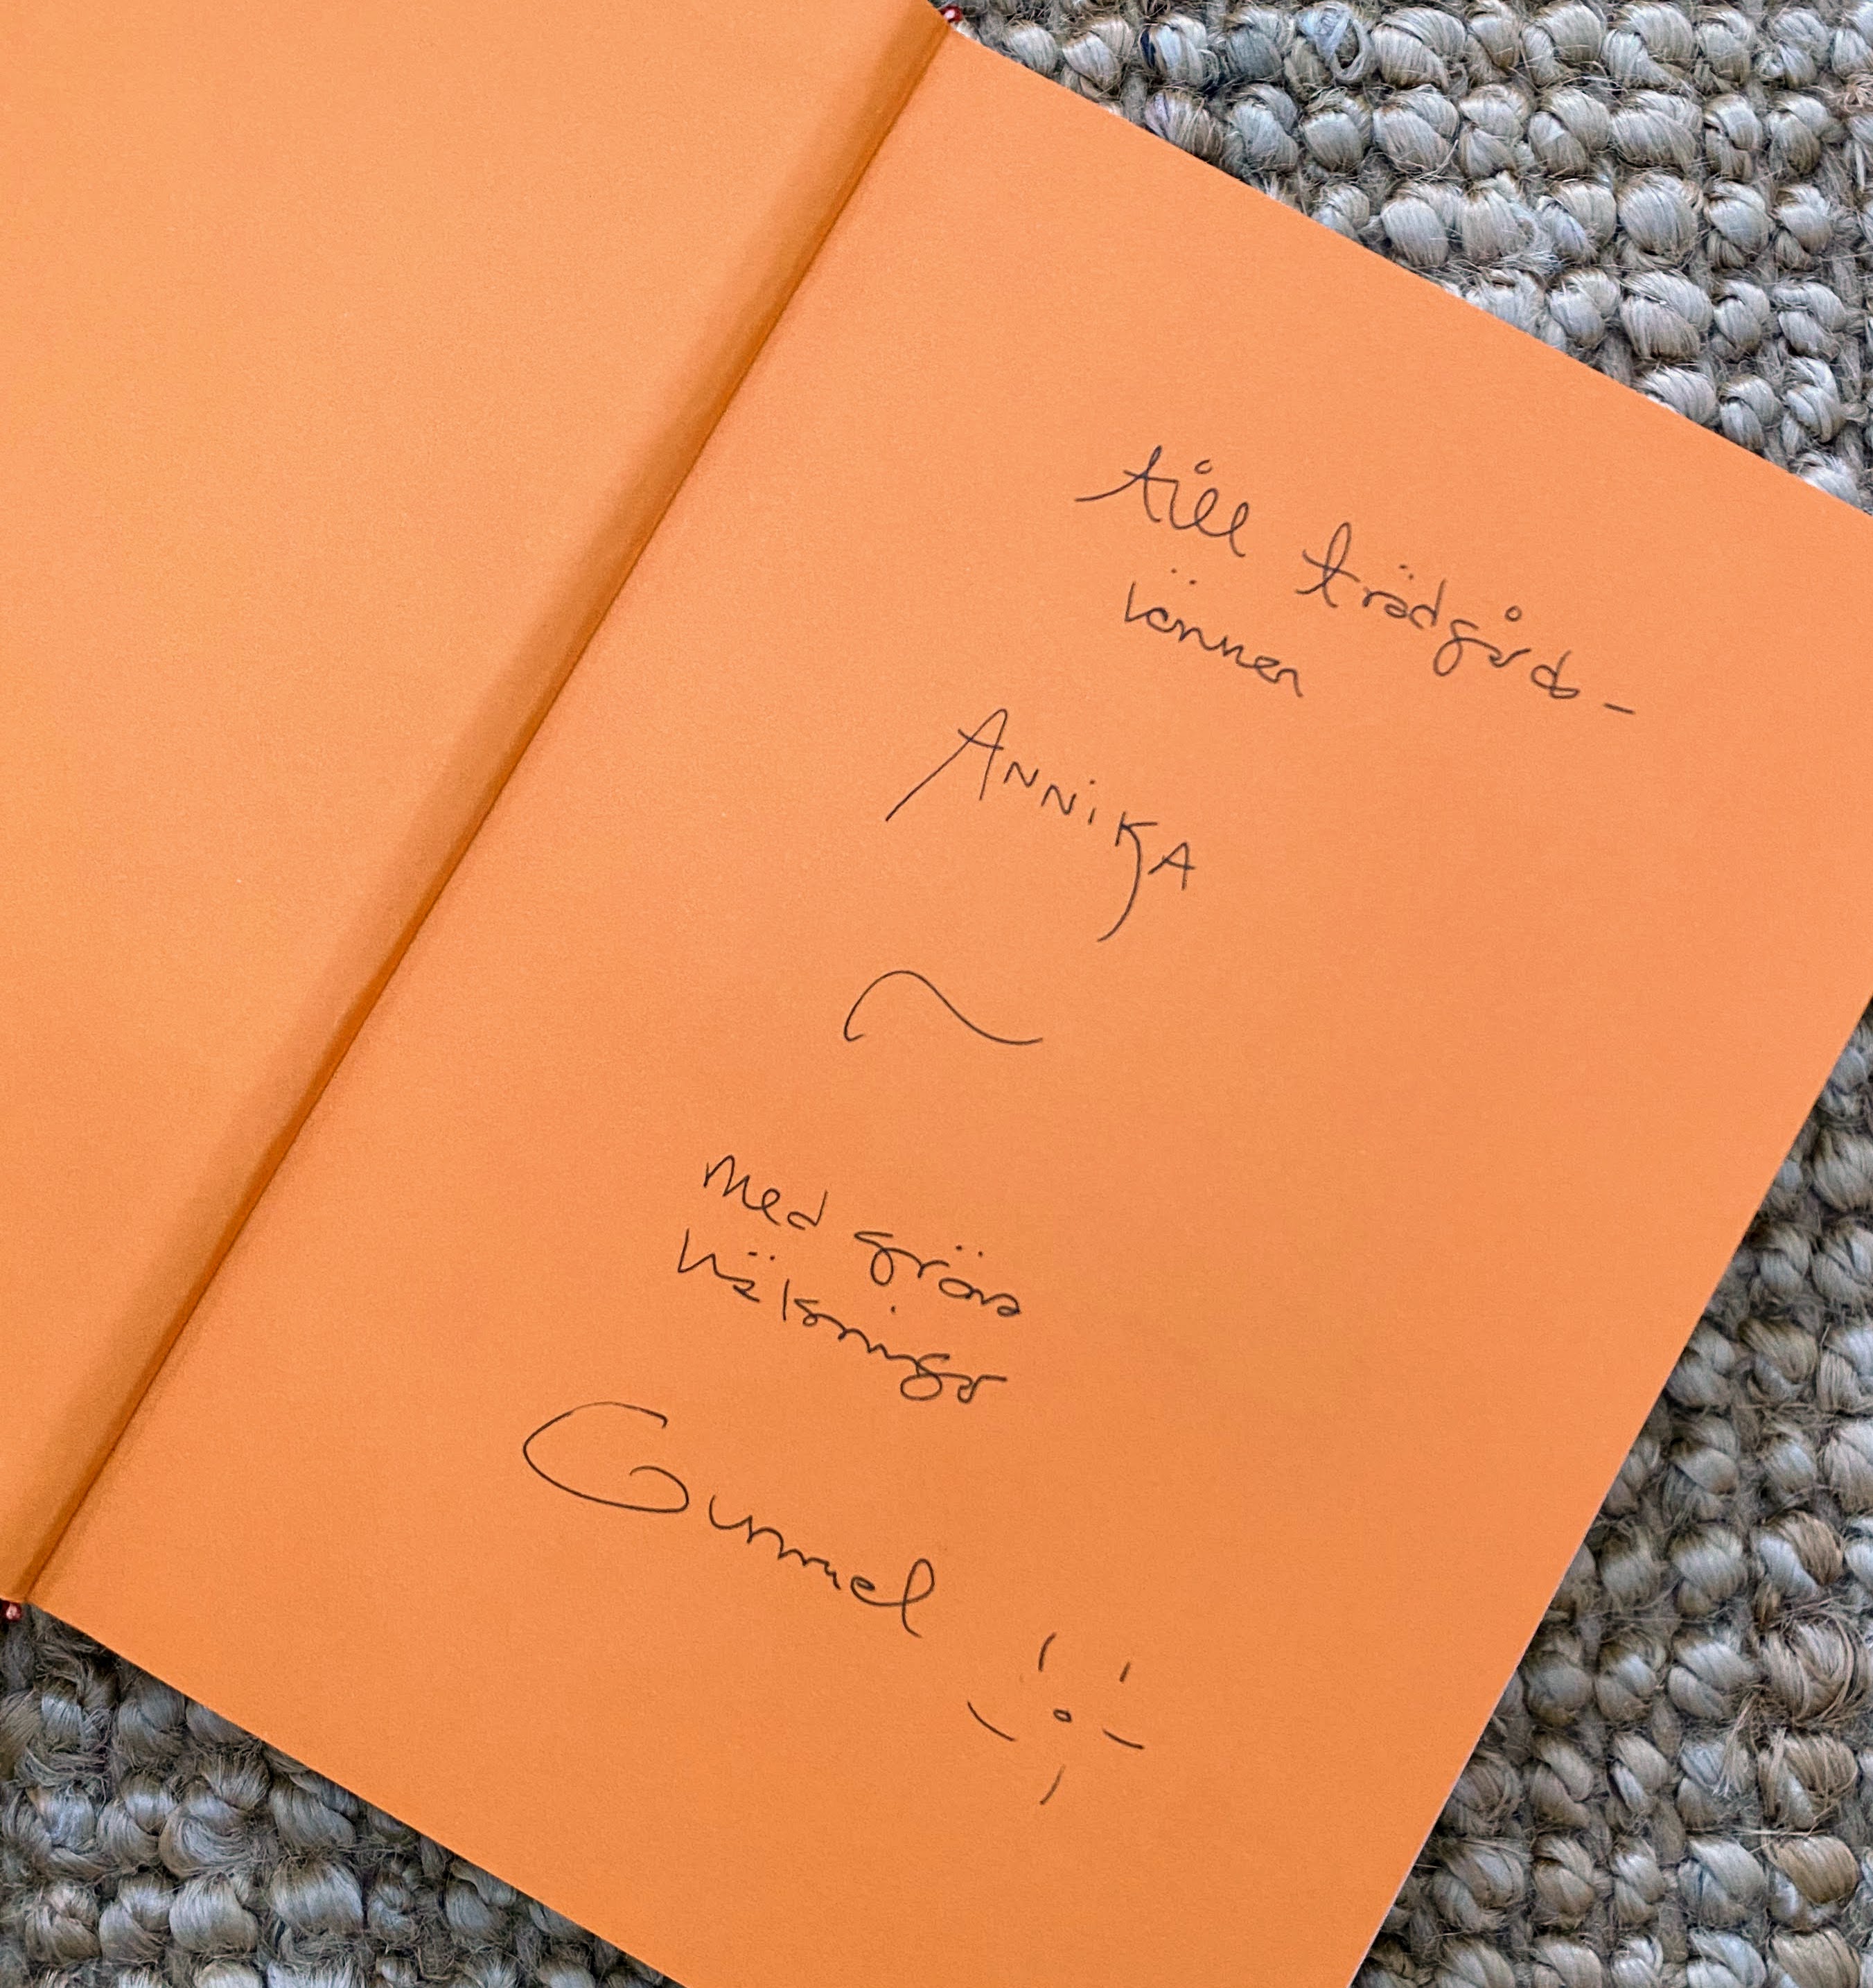 till trädgårds-
vännen
ANNiKA
med gröna
hälsningar
Gunnel